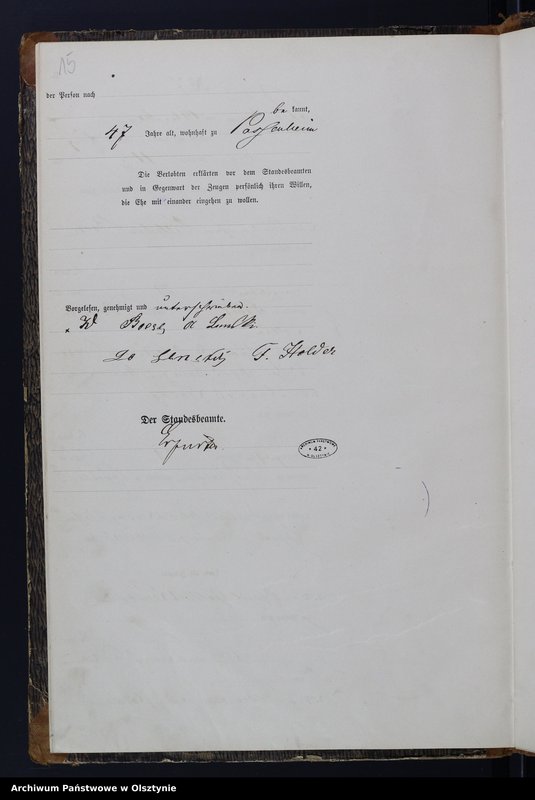 15
der Person nach
be kannt,
47 Jahre alt, wohnhaft zu Passenheim
Die Verlobten erklärten vor dem Standesbeamten
und in Gegenwart der Zeugen persönlich ihren Willen,
die Ehe mit einander eingehen zu wollen.
Vorgelesen, genehmigt und unterschrieben.
F. Holder
Der Standesbeamte.
42
Archiwum Państwowe w Olsztynie